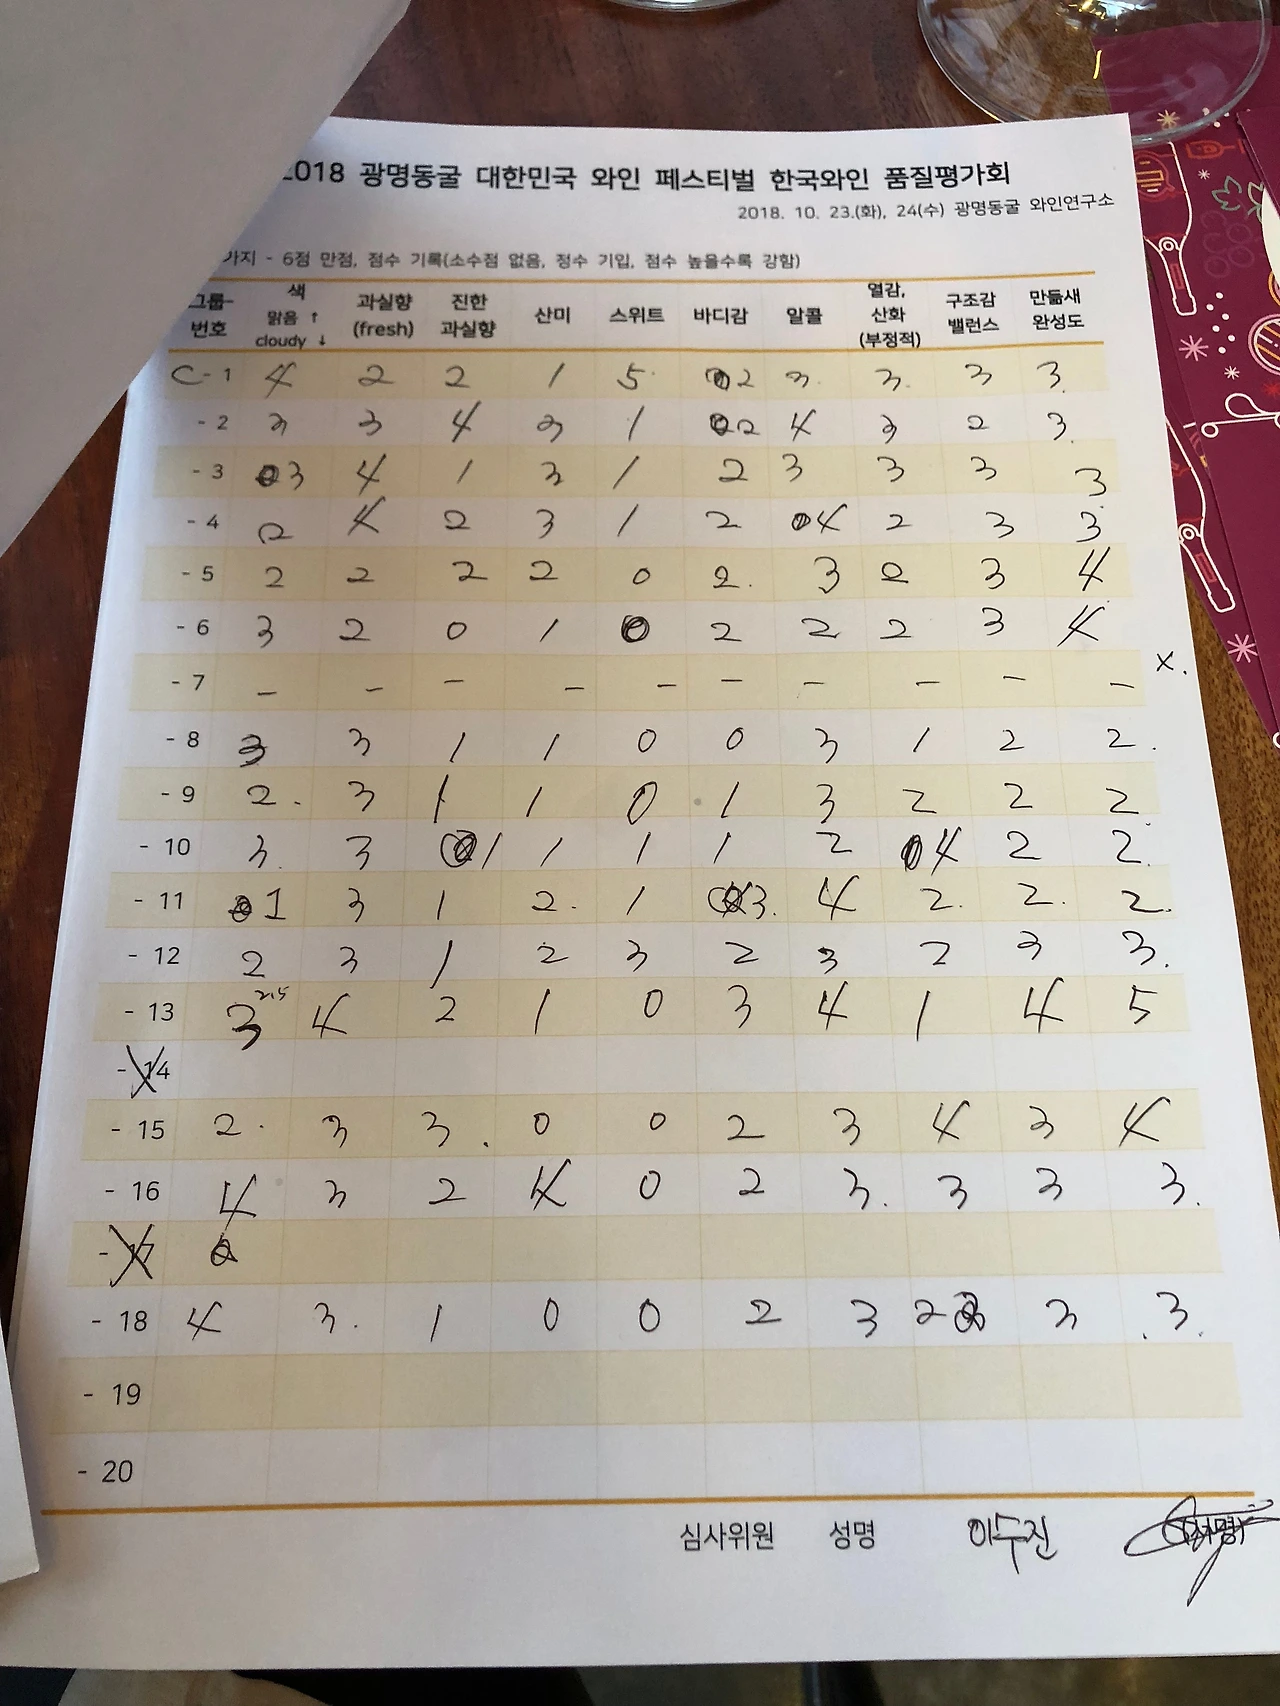 2018 광명동굴 대한민국 와인 페스티벌 한국와인 품질평가회
2018. 10. 23.(화), 24(수) 광명동굴 와인연구소
가지 - 6점 만점, 점수 기록(소수점 없음, 정수 기입, 점수 높을수록 강함)
그룹 번호 색 맑음 ↑ cloudy ↓ 과실향 (fresh) 진한 과실향 산미 스위트 바디감 알콜 열감, 산화 (부정적) 구조감 밸런스 만듦새 완성도
C - 1 4 2 2 1 5 2 3 3 3 3
- 2 3 3 4 3 1 2 4 3 2 3
- 3 3 4 1 3 1 2 3 3 3 3
- 4 2 4 2 3 1 2 4 2 3 3
- 5 2 2 2 2 0 2 3 2 3 4
- 6 3 2 0 1 0 2 2 2 3 4
- 7 – – – – – – – – – – x.
- 8 3 3 1 1 0 0 3 1 2 2
- 9 2 3 1 1 0 1 3 2 2 2
- 10 3 3 1 1 1 1 2 4 2 2
- 11 1 3 1 2 1 3 4 2 2 2
- 12 2 3 1 2 3 2 3 2 3 3
- 13 3 2.5 4 2 1 0 3 4 1 4 5
- 14
- 15 2 3 3 0 0 2 3 4 3 4
- 16 4 3 2 4 0 2 3 3 3 3
- 17
- 18 4 3 1 0 0 2 3 2 3 3
- 19
- 20
심사위원 성명 이수진 (서명)